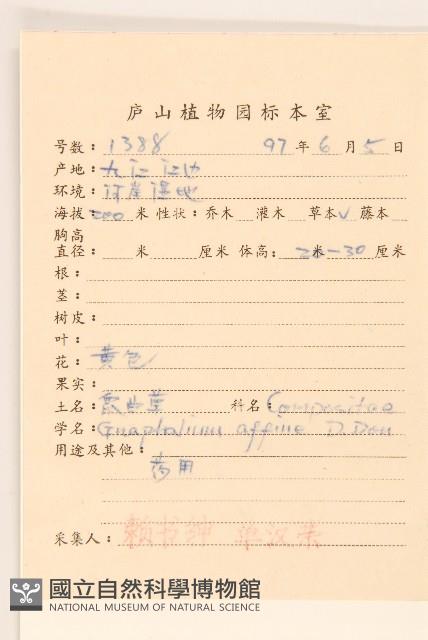 庐山植物园标本室
号数：1388 97年6月5日
产地：九江 江边
环境：河岸湿地
海拔：200 米 性状：乔木 灌木 草本√ 藤本
胸高
直径： 米 厘米 体高： 米 20—30 厘米
根：
茎：
树皮：
叶：
花：黄色
果实：
土名：鼠曲草 科名：Compositae
学名：Gnaphalium affine D. Don
用途及其他：
药用
采集人：赖书绅 单汉荣
國立自然科學博物館
NATIONAL MUSEUM OF NATURAL SCIENCE